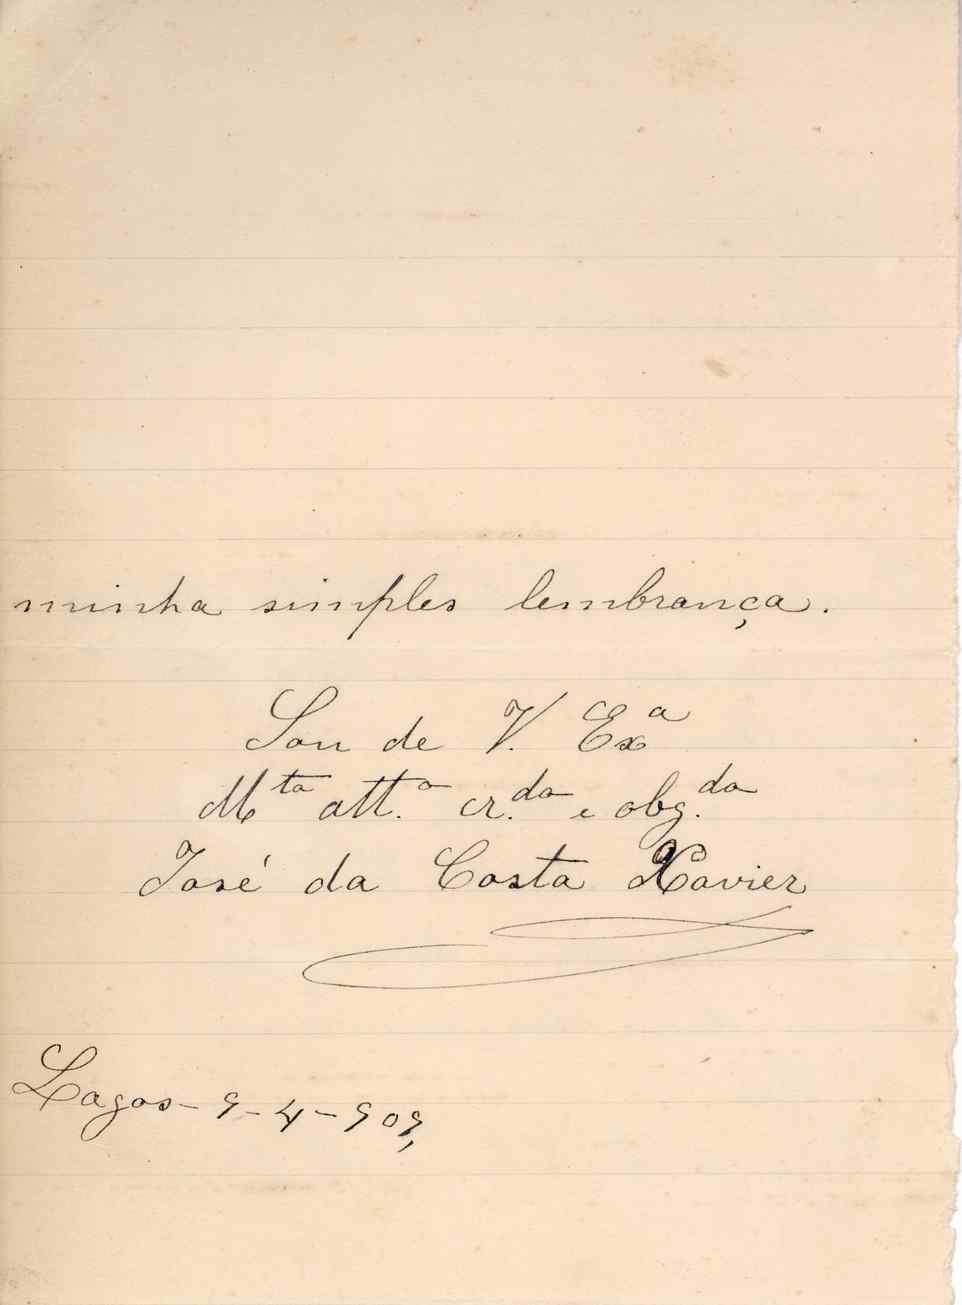 minha simples lembrança.
Sou de V. Exª
Mto att.º cr.do e obg.do
José da Costa Xavier
Lagos - 9 - 4 - 909,